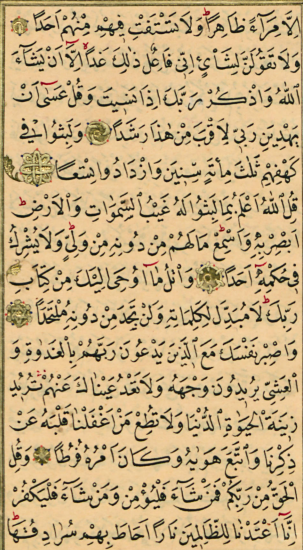 اِلَّا مِرَآءً ظَاهِرًا وَلَا تَسْتَفْتِ فِيهِمْ مِنْهُمْ اَحَدًا
وَلَا تَقُولَنَّ لِشَاْيْءٍ اِنّ۪ى فَاعِلٌ ذٰلِكَ غَدًا اِلَّآ اَنْ يَشَآءَ
اللّٰهُ وَاذْكُرْ رَبَّكَ اِذَا نَس۪يتَ وَقُلْ عَسٰٓى اَنْ
يَهْدِيَنِ رَبّ۪ى لِاَقْرَبَ مِنْ هٰذَا رَشَدًا وَلَبِثُوا ف۪ى
كَهْفِهِمْ ثَلٰثَ مِائَةٍ سِن۪ينَ وَازْدَادُوا تِسْعًا
قُلِ اللّٰهُ اَعْلَمُ بِمَا لَبِثُوا لَهُ غَيْبُ السَّمٰوَاتِ وَالْاَرْضِ
اَبْصِرْ بِه۪ وَاَسْمِعْ مَا لَهُمْ مِنْ دُونِه۪ مِنْ وَلِىٍّ وَلَا يُشْرِكُ
ف۪ى حُكْمِه۪ٓ اَحَدًا وَاتْلُ مَآ اُو۫حِىَ اِلَيْكَ مِنْ كِتَابِ
رَبِّكَ لَا مُبَدِّلَ لِكَلِمَاتِه۪ وَلَنْ تَجِدَ مِنْ دُونِه۪ مُلْتَحَدًا
وَاصْبِرْ نَفْسَكَ مَعَ الَّذ۪ينَ يَدْعُونَ رَبَّهُمْ بِالْغَدٰوةِ وَ
الْعَشِىِّ يُر۪يدُونَ وَجْهَهُ وَلَا تَعْدُ عَيْنَاكَ عَنْهُمْ تُر۪يدُ
ز۪ينَةَ الْحَيٰوةِ الدُّنْيَا وَلَا تُطِعْ مَنْ اَغْفَلْنَا قَلْبَهُ عَنْ
ذِكْرِنَا وَاتَّبَعَ هَوٰيهُ وَكَانَ اَمْرُهُ فُرُطًا وَقُلِ
الْحَقُّ مِنْ رَبِّكُمْ فَمَنْ شَآءَ فَلْيُؤْمِنْ وَمَنْ شَآءَ فَلْيَكْفُرْ
اِنَّآ اَعْتَدْنَا لِلظَّالِم۪ينَ نَارًا اَحَاطَ بِهِمْ سُرَادِقُهَا